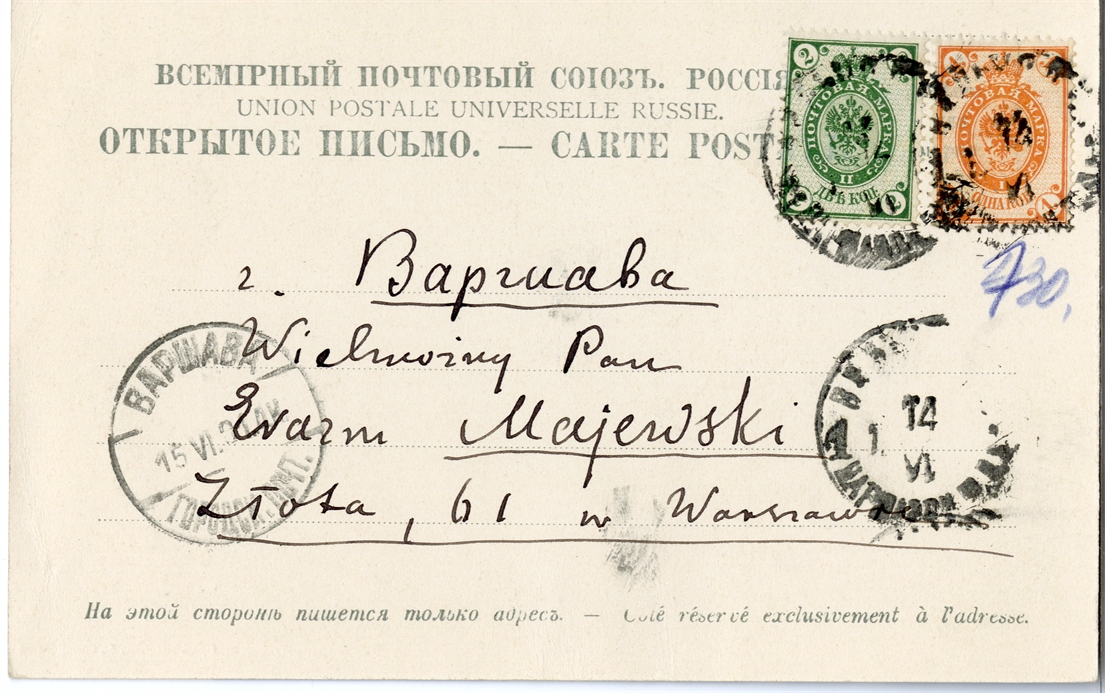 ВСЕМІРНЫЙ ПОЧТОВЫЙ СОЮЗЪ. РОССІЯ
UNION POSTALE UNIVERSELLE RUSSIE.
ОТКРЫТОЕ ПИСЬМО. — CARTE POST
2
ПОЧТОВАЯ МАРКА
II
ДВѢ КОП
ПОЧТОВАЯ МАРКА
ОДНА КОП
1
г. Варшава
730.
Wielmożny Pan
Erazm Majewski
Złota, 61 w Warszawie
ВАРШАВА
15 VI
14
VI
На этой сторонѣ пишется только адресъ. — Coté réservé exclusivement à l'adresse.